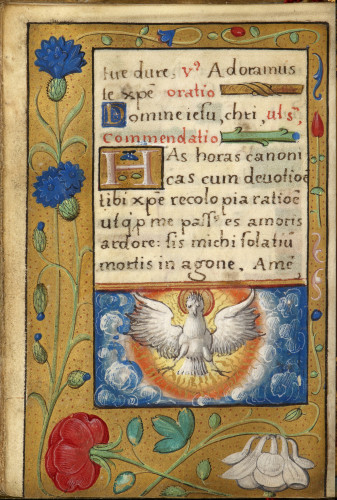 ture dure, V° Adoramus
te xp̄e oratio
Domine iesu, chri, ut s̄,
Commendatio
HAs horas canoni
cas cum deuotiōe
tibi xp̄e recolo pia ratiōe
ut q̄ p me pass⁹ es amoris
ardore: sis michi solatiū
mortis in agone, Amē,